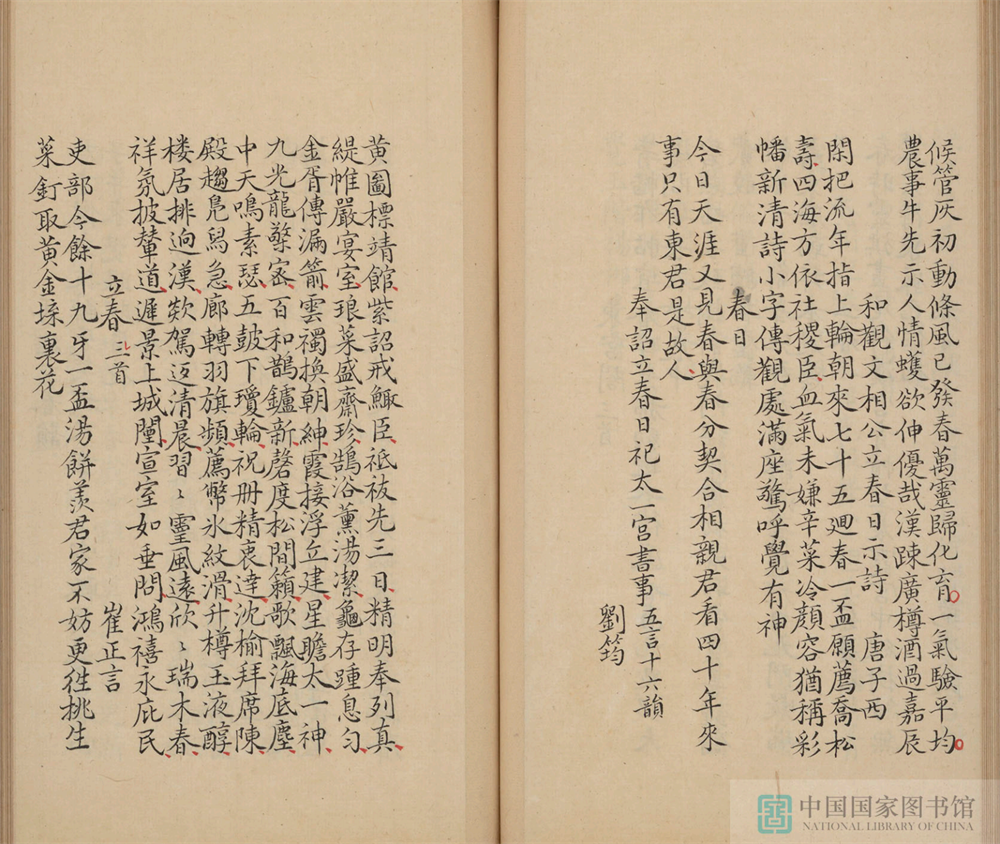 候管灰初動條風已發春萬靈歸化育一氣驗平均
農事牛先示人情蠖欲伸優哉漢疎廣樽酒過嘉辰
和觀文相公立春日示詩 唐子西
閑把流年指上輪朝來七十五廻春一盃願薦喬松
壽四海方依社稷臣血氣未嫌辛菜冷顔容猶稱彩
幡新清詩小字傳觀處滿座驚呼覺有神
春日
今日天涯又見春與春分契合相親君看四十年來
事只有東君是故人
奉詔立春日祀太一宮書事五言十六韻
劉筠
黄圖標靖館紫詔戒鯫臣祗祓先三日精明奉列真
緹帷嚴宴室琅菜盛齋珍鵠浴薰湯潔龜存踵息匀
金胥傳漏箭雲襡換朝紳霞接浮丘建星瞻太一神
九光龍檠密百和鵲鑪新磬度松間籟歌飄海底塵
中天鳴素瑟五皷下瓊輪祝册精衷達沈榆拜席陳
殿趨鳬舄急廊轉羽旗頻薦幣氷紋滑升樽玉液醇
楼居排逈漢欻駕返清晨習〻靈風遠欣〻瑞木春
祥氛披輦道遲景上城闉宣室如垂問鴻禧永庇民
立春 二首 崔正言
吏部今餘十九牙一盃湯餅羡君家不妨更徃挑生
菜飣取黄金埰裏花
中国国家图书馆
NATIONAL LIBRARY OF CHINA